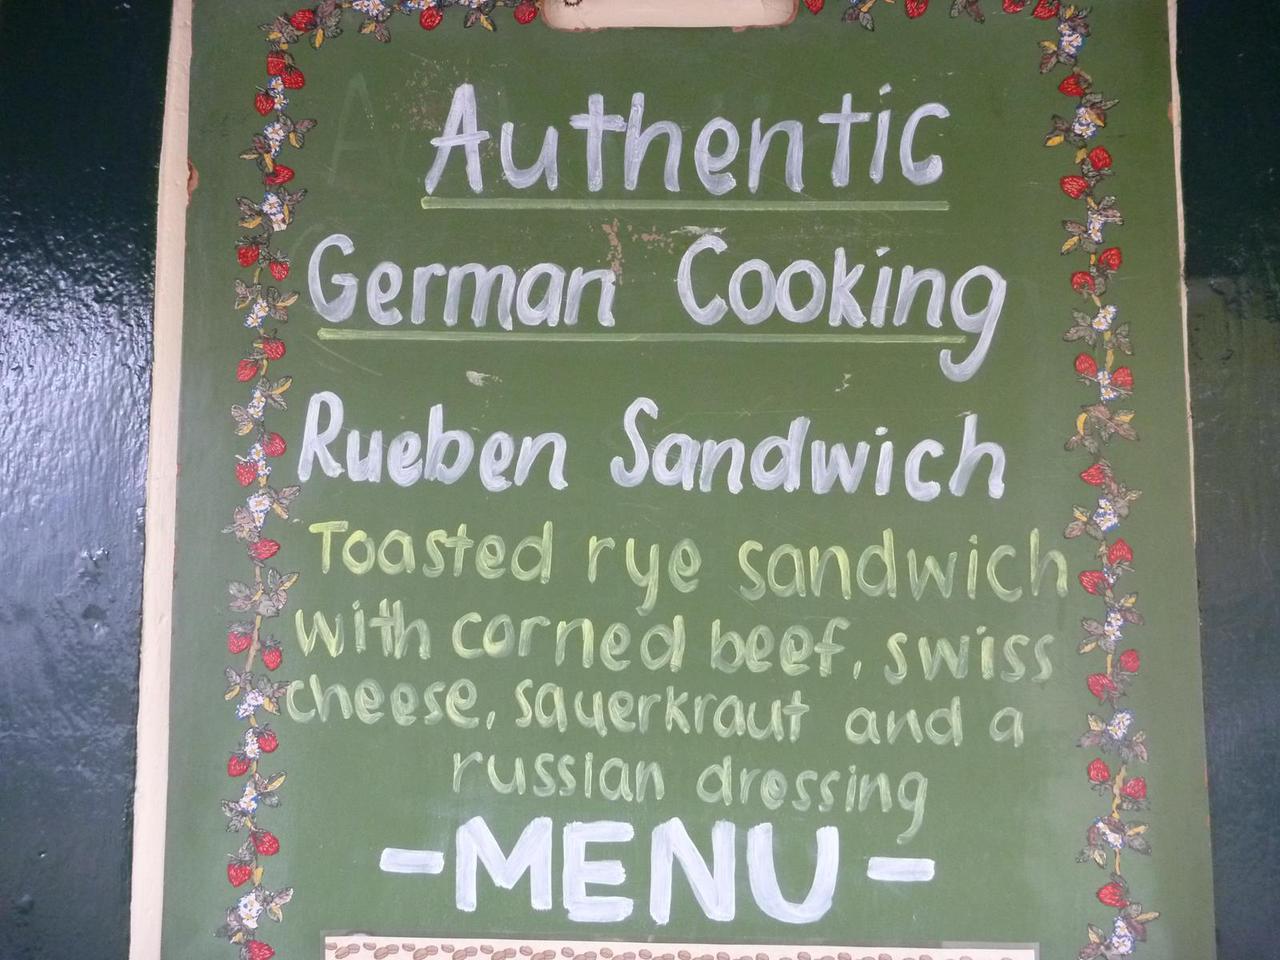 Authentic
German Cooking
Rueben Sandwich
Toasted rye sandwich
with corned beef, swiss
cheese, sauerkraut and a
russian dressing
-MENU-